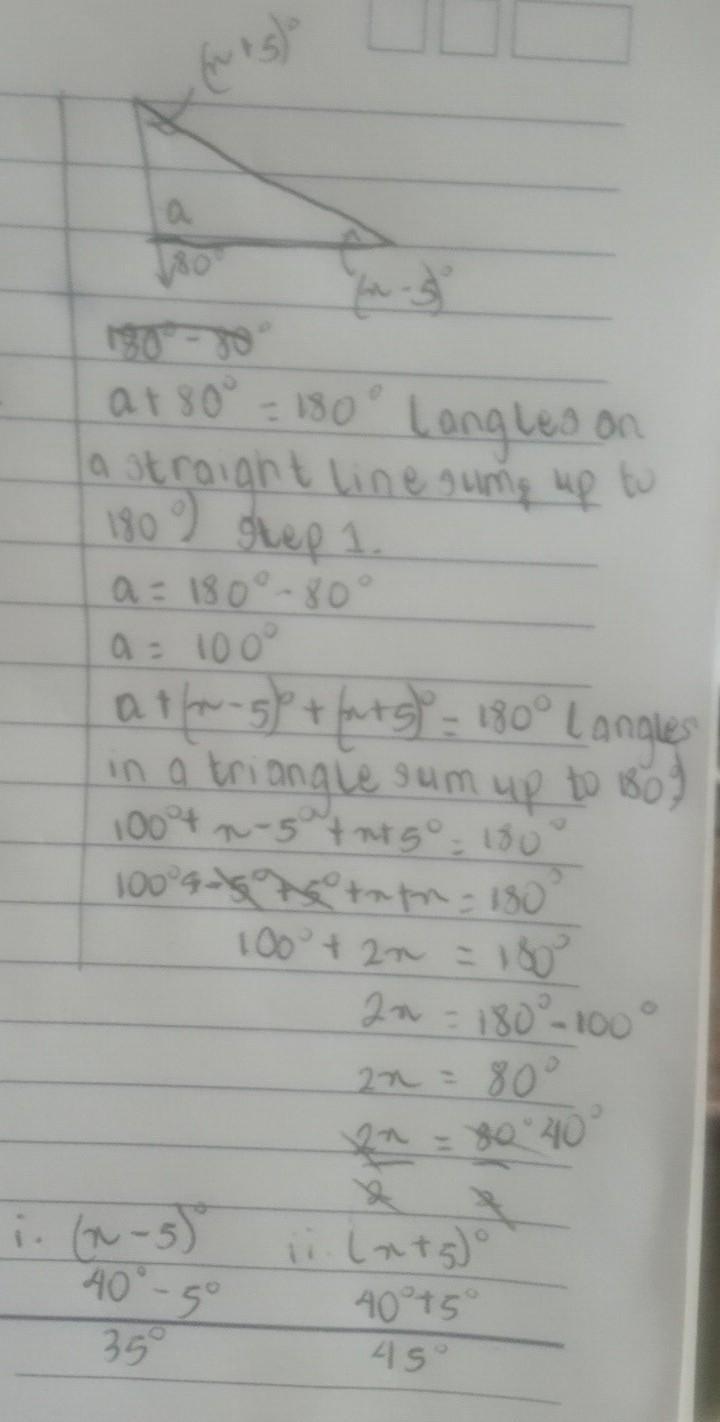 (n+5)°
a
80°
(n-5)°
180° - 80°
a + 80° = 180° (angles on
a straight line sums up to
180°) step 1.
a = 180° - 80°
a = 100°
a + (n-5)° + (n+5)° = 180° (angles
in a triangle sum up to 180°)
100° + n - 5° + n + 5° = 180°
100° + - 5° + 5° + n + n = 180°
100° + 2n = 180°
2n = 180° - 100°
2n = 80°
2n = 80° 40°
2 2
i. (n-5)° ii. (n+5)°
40° - 5° 40° + 5°
35° 45°